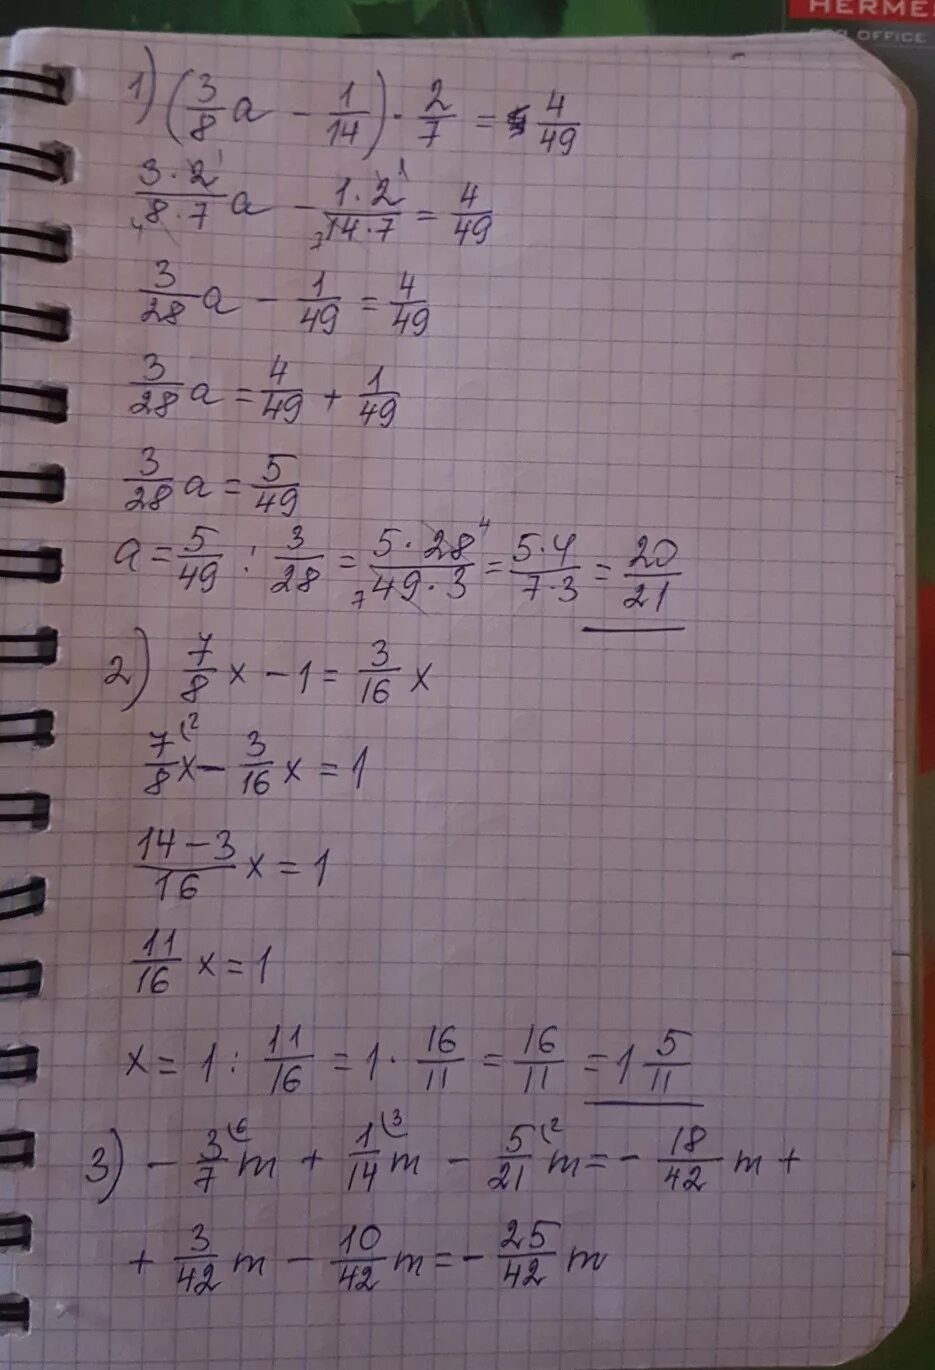 HERME
OFFICE
1) (3/8 a - 1/14) · 2/7 = 4/49
3·2/8·7 a - 1·2/14·7 = 4/49
3/28 a - 1/49 = 4/49
3/28 a = 4/49 + 1/49
3/28 a = 5/49
a = 5/49 : 3/28 = 5·28/49·3 = 5·4/7·3 = 20/21
2) 7/8 x - 1 = 3/16 x
7/8 x - 3/16 x = 1
14-3/16 x = 1
11/16 x = 1
x = 1 : 11/16 = 1 · 16/11 = 16/11 = 1 5/11
3) - 3/7 m + 1/14 m - 5/21 m = - 18/42 m +
+ 3/42 m - 10/42 m = - 25/42 m